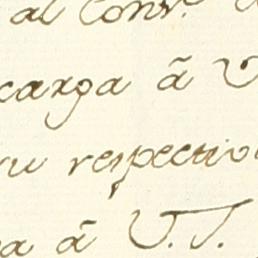 al Cons.º
carga â V
su respectivo
a â V.S.